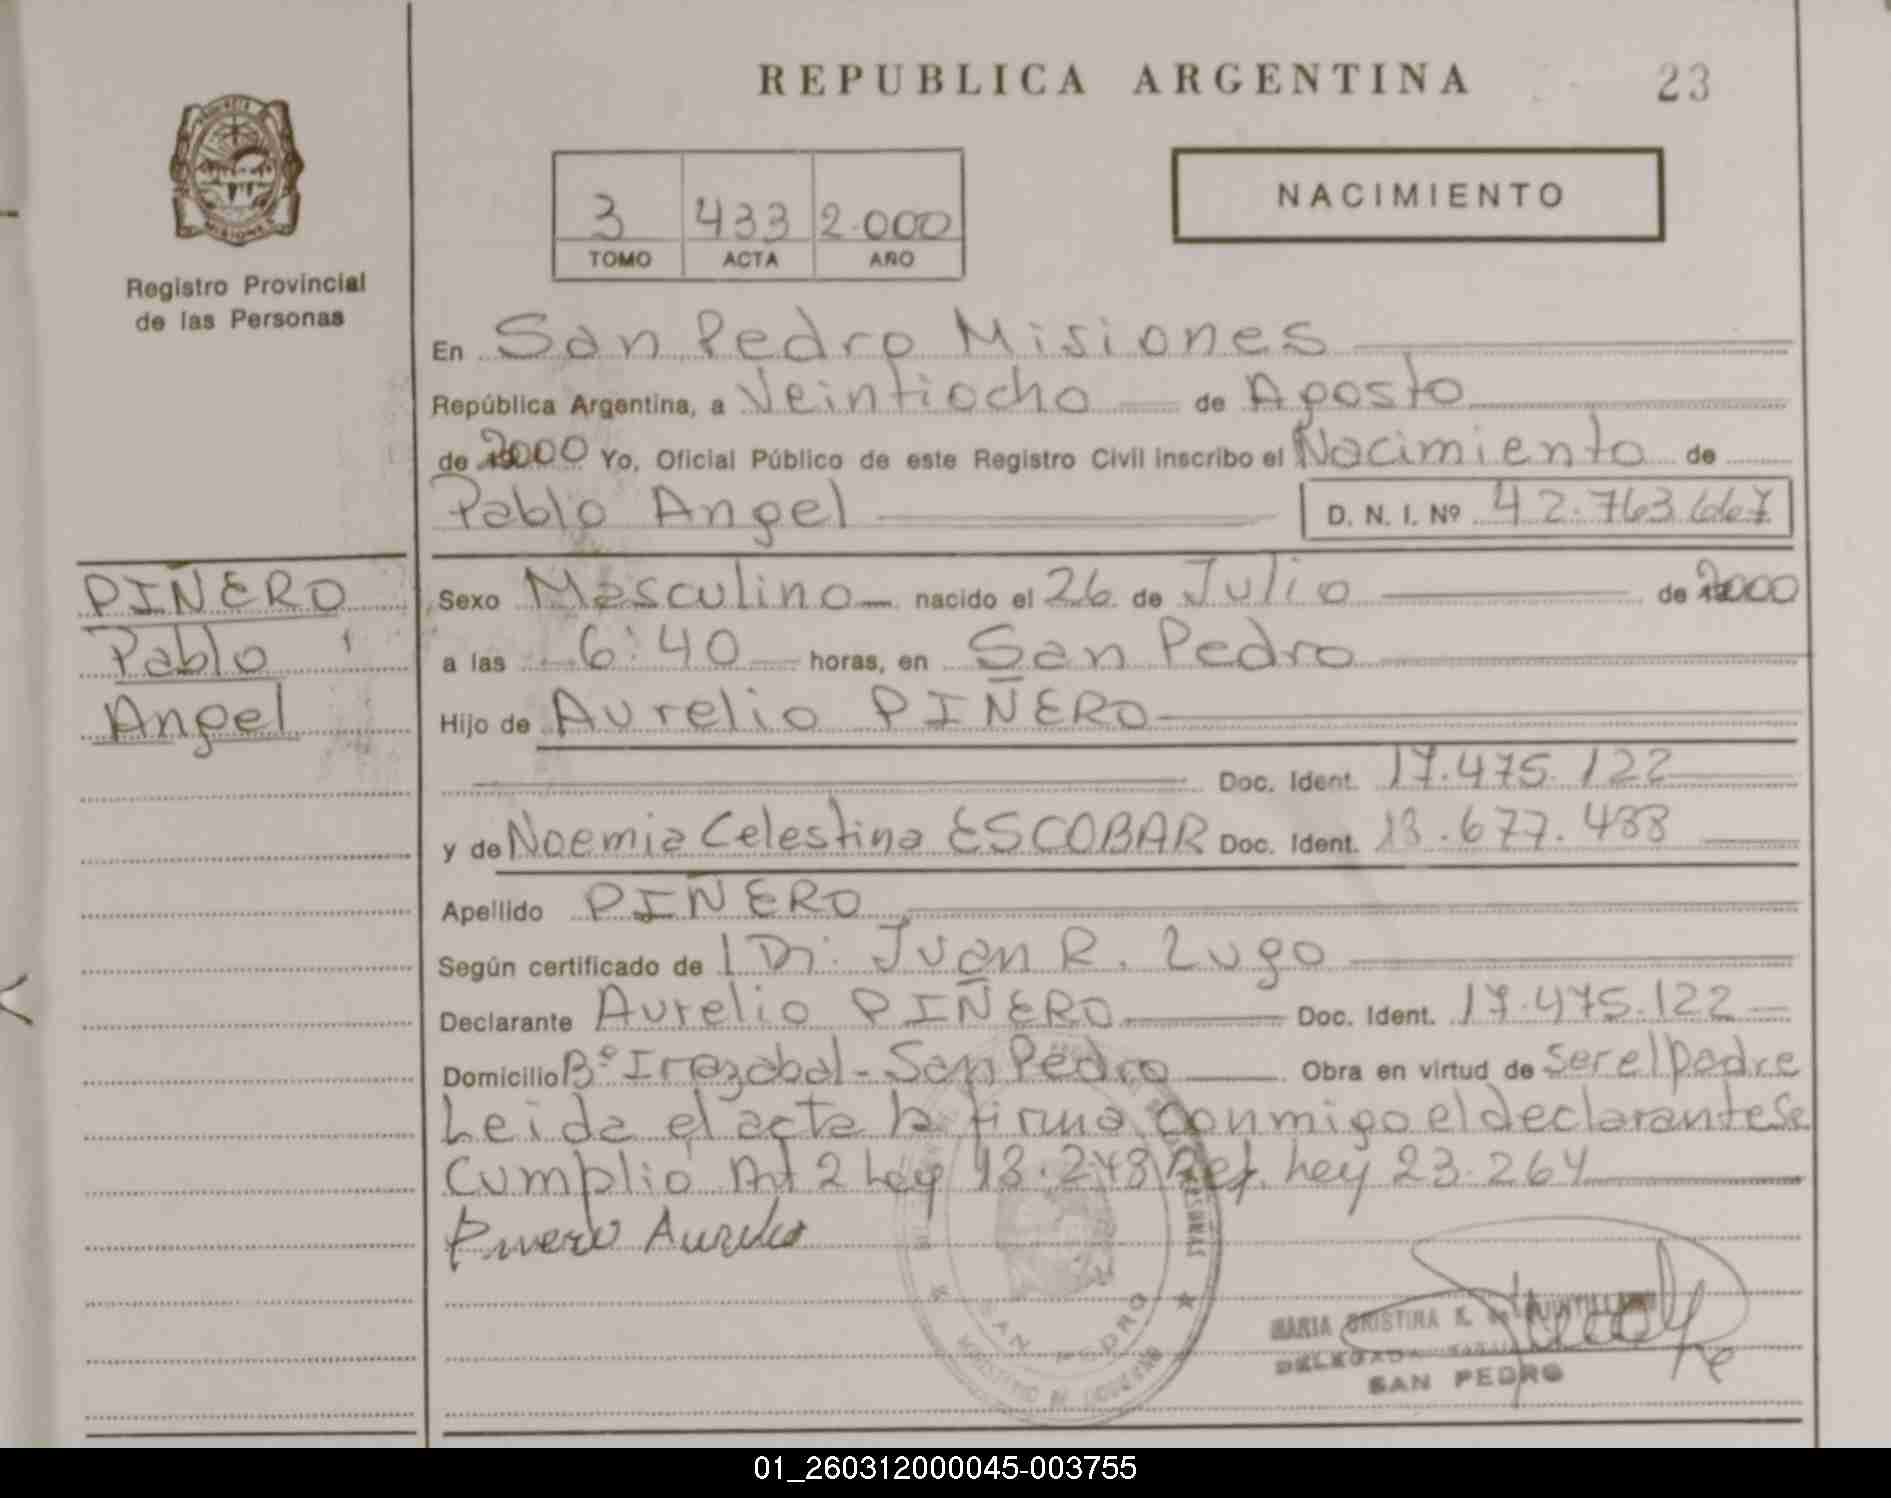 REPUBLICA ARGENTINA 23
NACIMIENTO
3 433 2.000
TOMO ACTA AÑO
MISIONES
Registro Provincial
de las Personas
En San Pedro Misiones
República Argentina, a Veintiocho de Agosto
de 2000 Yo, Oficial Público de este Registro Civil inscribo el Nacimiento de
Pablo Angel D. N. I. Nº 42.763.667
PIÑERO
Pablo
Angel
Sexo Masculino nacido el 26 de Julio de 2000
a las 6:40 horas, en San Pedro
Hijo de Aurelio PIÑERO
Doc. Ident. 17.475.122
y de Noemia Celestina ESCOBAR Doc. Ident. 18.677.488
Apellido PIÑERO
Según certificado de Dr. Juan R. Lugo
Declarante Aurelio PIÑERO Doc. Ident. 17.475.122
Domicilio Bº Irrazabal - San Pedro Obra en virtud de ser el padre
Leida el acta la firma conmigo el declarante Se
Cumplio Art 2 Ley 18.248 Ref. Ley 23.264
Piñero Aurelio
MARIA CRISTINA K. de QUINTILLANO
DELEGADA
SAN PEDRO
SAN PEDRO
MINISTERIO DE GOBIERNO
01_260312000045-003755